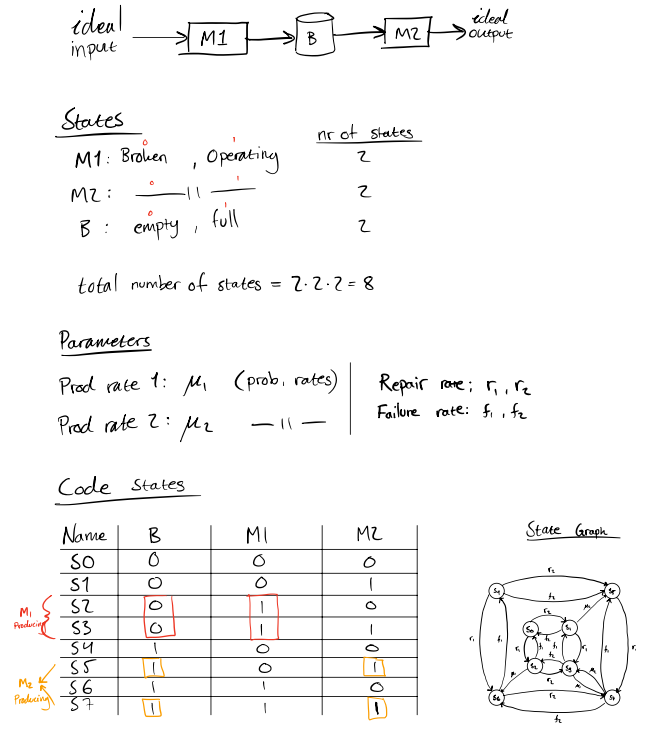 ideal input
M1
B
M2
ideal output
States
nr of states
0 1
M1: Broken , Operating 2
0 1
M2: —— 11 —— 2
0 1
B: empty , full 2
total number of states = 2·2·2 = 8
Parameters
Prod rate 1: μ1 (prob. rates)
Prod rate 2: μ2 — 11 —
Repair rate; r1, r2
Failure rate: f1, f2
Code States
Name B M1 M2
S0 0 0 0
S1 0 0 1
S2 0 1 0
S3 0 1 1
S4 1 0 0
S5 1 0 1
S6 1 1 0
S7 1 1 1
M1 Producing
M2 Producing
State Graph
r2
S4 S5
f2
μ2
r2
S0 S1
f2
r1 f1 r1 f1 f1 r1 f1 r1
f2
S2 S3
r2
S6 r2 S7
f2